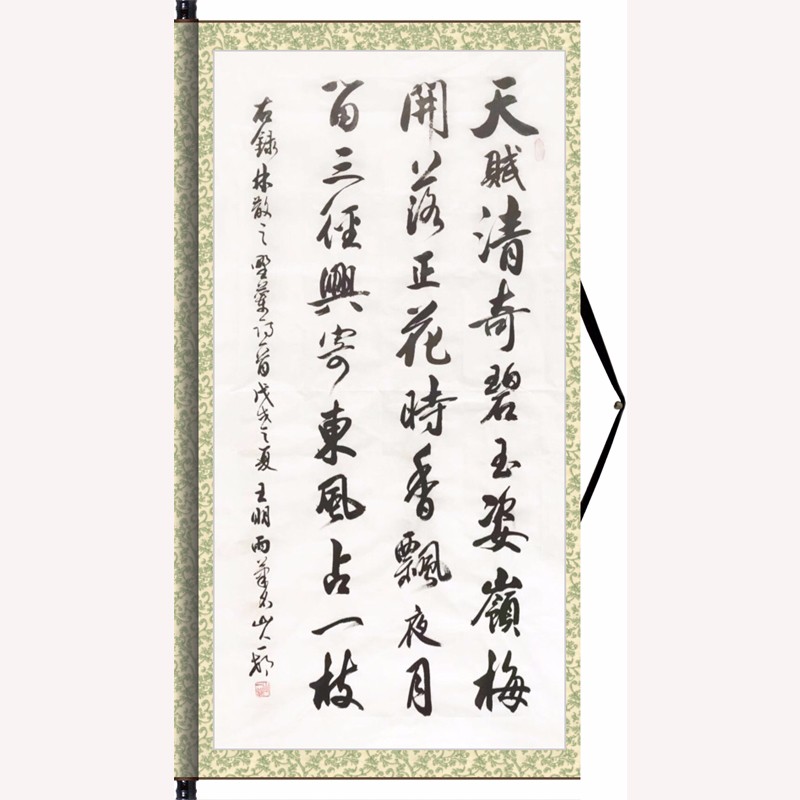 天賦清奇碧玉姿嶺梅
開落正花時香飄夜月
留三徑興寄東風占一枝
右錄林散之詩一首戊戌之夏王明雨筆名山人一邨